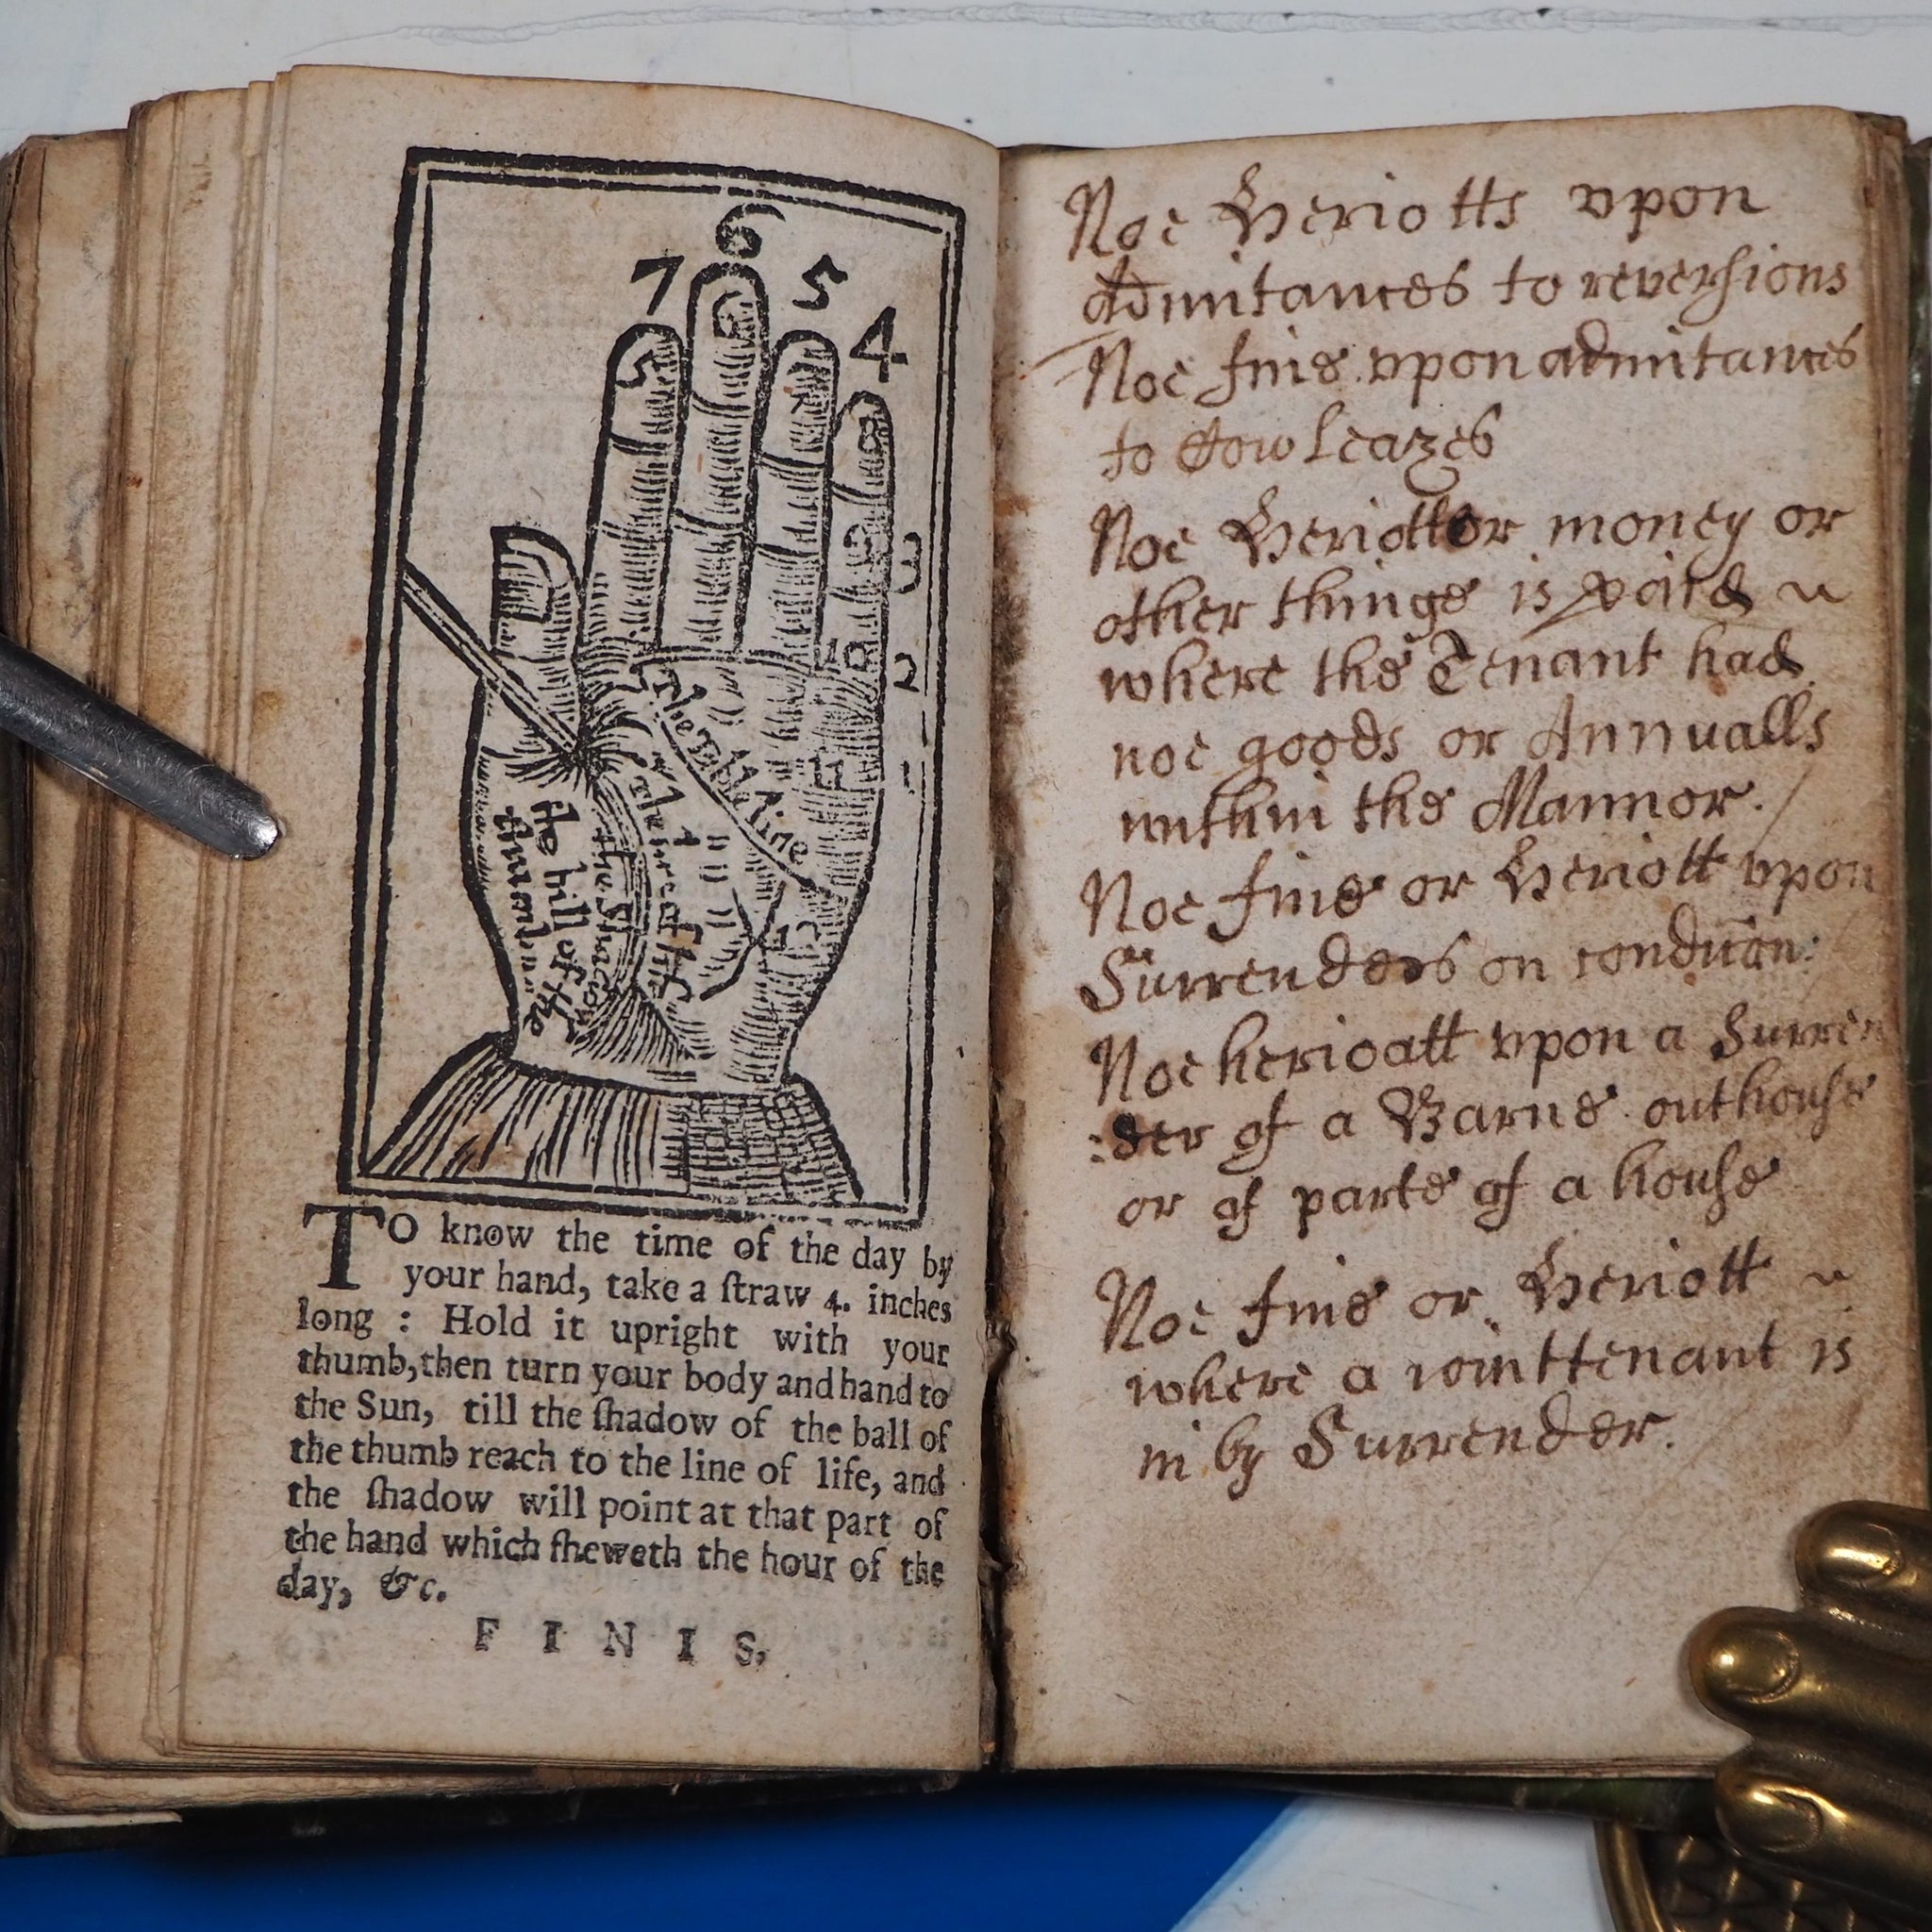 6
7 5
4
6
5 7
8
9 3
10 2
The Table line
11 1
The line of life
12
the hill of the
thumb
TO know the time of the day by
your hand, take a ſtraw 4. inches
long : Hold it upright with your
thumb, then turn your body and hand to
the Sun, till the ſhadow of the ball of
the thumb reach to the line of life, and
the ſhadow will point at that part of
the hand which ſheweth the hour of the
day, &c.
F I N I S.
Noe Heriotts vpon
admitances to reversions
Noe fine vpon admitances
to Cow leazes
Noe Heriott or money or
other thinge is paid
where the Tenant had
noe goods or Annualls
within the Mannor.
Noe fine or Heriott vpon
Surrenders on condic̃on:
Noe herioatt vpon a Surren
:der of a Barne outhouse
or of parte of a house
Noe fine or Heriott
where a iointtenant is
in by Surrender.